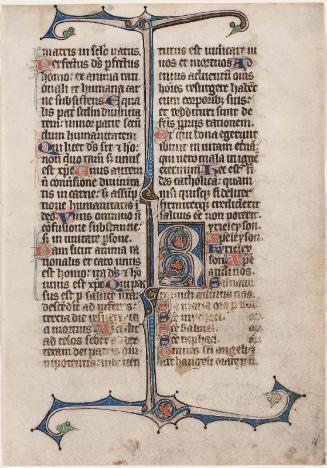 matris in sclo natus.
Perfectus ds pfectus
homo: ex anima rati
onali et humana car
ne subsistens. Equa
lis patri scdm divinita
tem: minor patre secun
dum humanitatem.
Qui licet ds sit et ho
mo: non duo tam s unus
est xpc. Unus autem
covsione divinita
tis in carne: s assup
tione humanitatis i
deo. Unus omnino n
confusione substancie:
s unitate psone.
Nam sicut anima ra
tionalis et caro unus
est homo: ita ds et ho
mo unus est xpc. Qui pas
sus est p salute nra:
descedit ad inferos:
tercia die resurrexit
a mortuis. Ascedit
ad celos sedet ad dex
teram dei patris om
nipotentis: inde ven
turus est iudicare vi
vos et mortuos. Ad
cuius adventu omes
homines resurgere habet
cum corporibus suis:
et reddituri sunt de
factis propriis rationem.
Et qui bona egerunt
ibunt in vitam etnam:
qui vero mala in igne
eternum. Hec est fi
des catholica: quam
nisi quisque fideliter
firmiterque crediderit
salvus ee non poterit.
Kyrieleyson.
Xpeleyson.
Kyrieley
son. Xpe
audi nos.
Sce michael.
Sce Gabriel.
Sce raphael.
Omnes sci angeli et
archangeli orate p n.